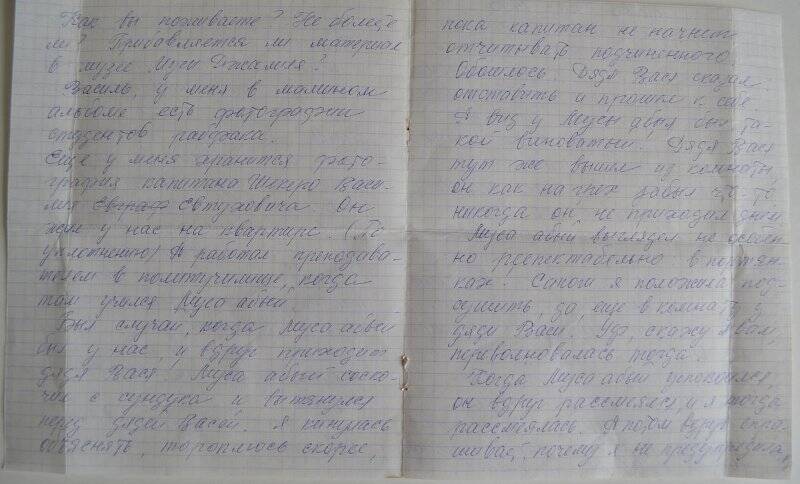 Как вы поживаете? Не болеете
ли? Прибавляется ли материал
в музее Мусы Джалиля?
Василь, у меня в мамином
альбоме есть фотографии
студентов рабфака.
Еще у меня хранится фото-
графия капитана Шкеро Васи-
лия Евграф Евтуховича. Он
жил у нас на квартире. (По
уплотнению) А работал преподава-
телем в политучилище, когда
там учился Муса абый.
Был случай, когда Муса абый
был у нас, и вдруг приходит
дядя Вася. Муса абый соско-
чил с сундука и вытянулся
перед дядей Васей. Я кинулась
объяснять, тороплюсь скорее,
пока капитан не начнет
отчитывать подчиненного.
Обошлось. Дядя Вася сказал:
отставить и прошел к себе.
А вид у Мусы абыя был та-
кой виноватый! Дядя Вася
тут же вышел из комнаты,
он как на грех забыл что-то
никогда он не приходил днем
Муса абый выглядел не особен-
но респектабельно в портян-
ках. Сапоги я положила под-
сушить, да, еще в комнату у
дяди Васи. Уф, скажу я вам,
переволновалась тогда.
Когда Муса абый успокоился,
он вдруг рассмеялся, и я тогда
рассмеялась. А потом вдруг спра-
шивает, почему я не предупредила,